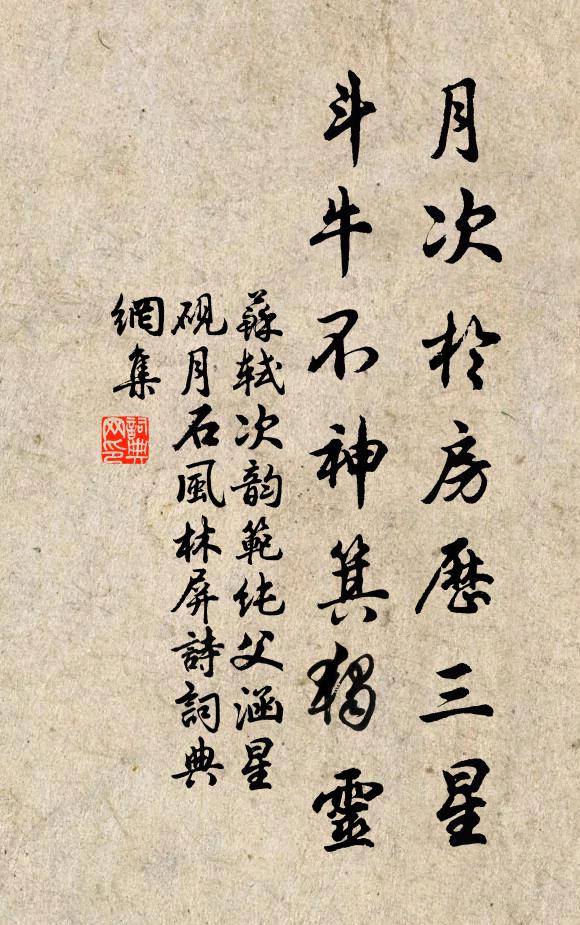 月次於房歷三星
斗牛不神箕獨靈
蘇軾次韵範純父涵星
硯月石風林屏詩詞典
網集
詞典
网印